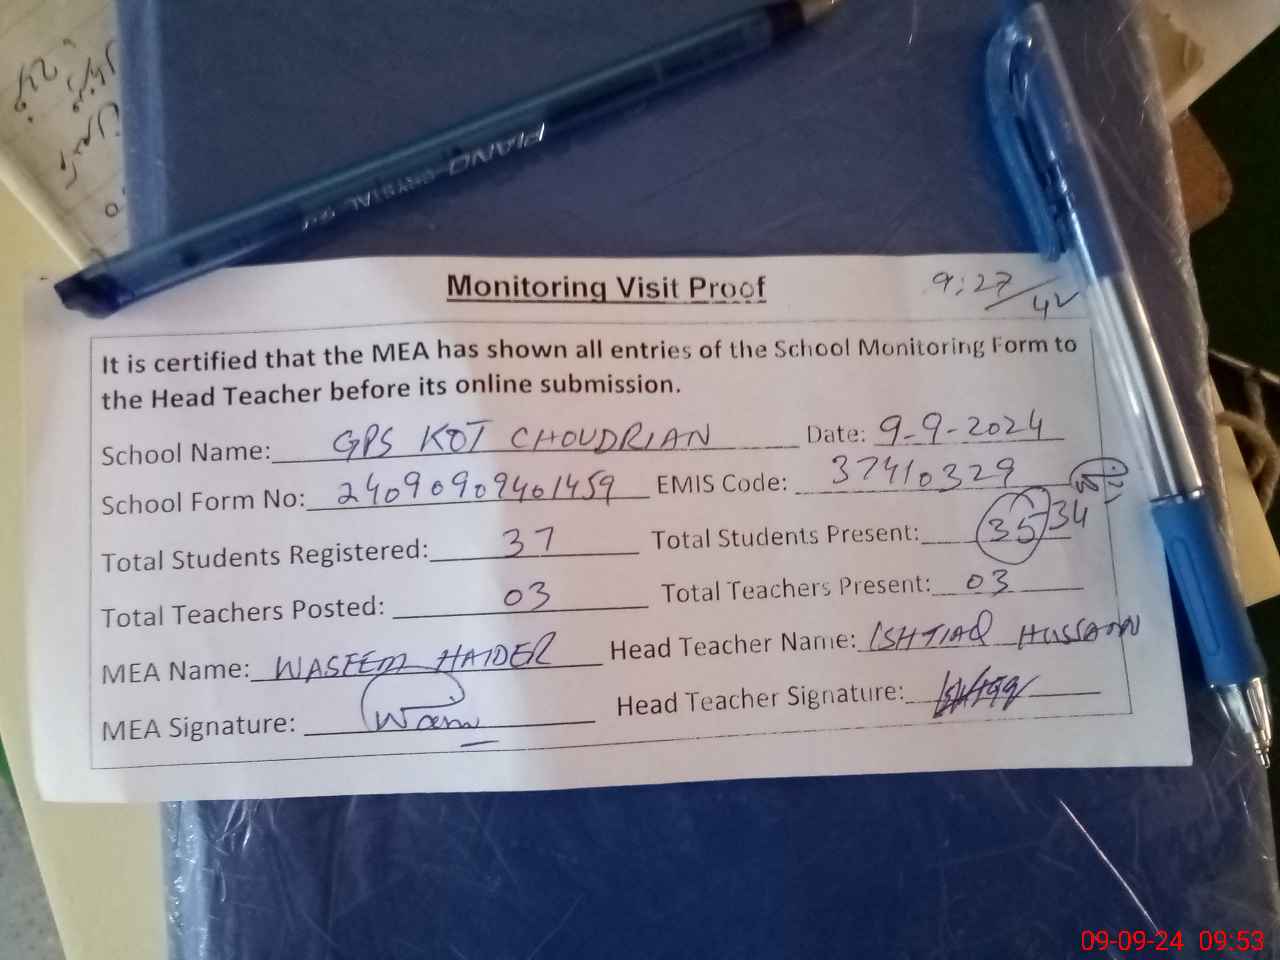 PIANO CRYSTAL
Monitoring Visit Proof
9:27/42
It is certified that the MEA has shown all entries of the School Monitoring Form to
the Head Teacher before its online submission.
School Name: GPS KOT CHOUDRIAN Date: 9-9-2024
School Form No: 24090909401459 EMIS Code: 37410329
Total Students Registered: 37 Total Students Present: 35 34
Total Teachers Posted: 03 Total Teachers Present: 03
MEA Name: WASEEM HAIDER Head Teacher Name: ISHTIAQ HUSSAIN
MEA Signature: Head Teacher Signature: Ishtiaq
09-09-24 09:53